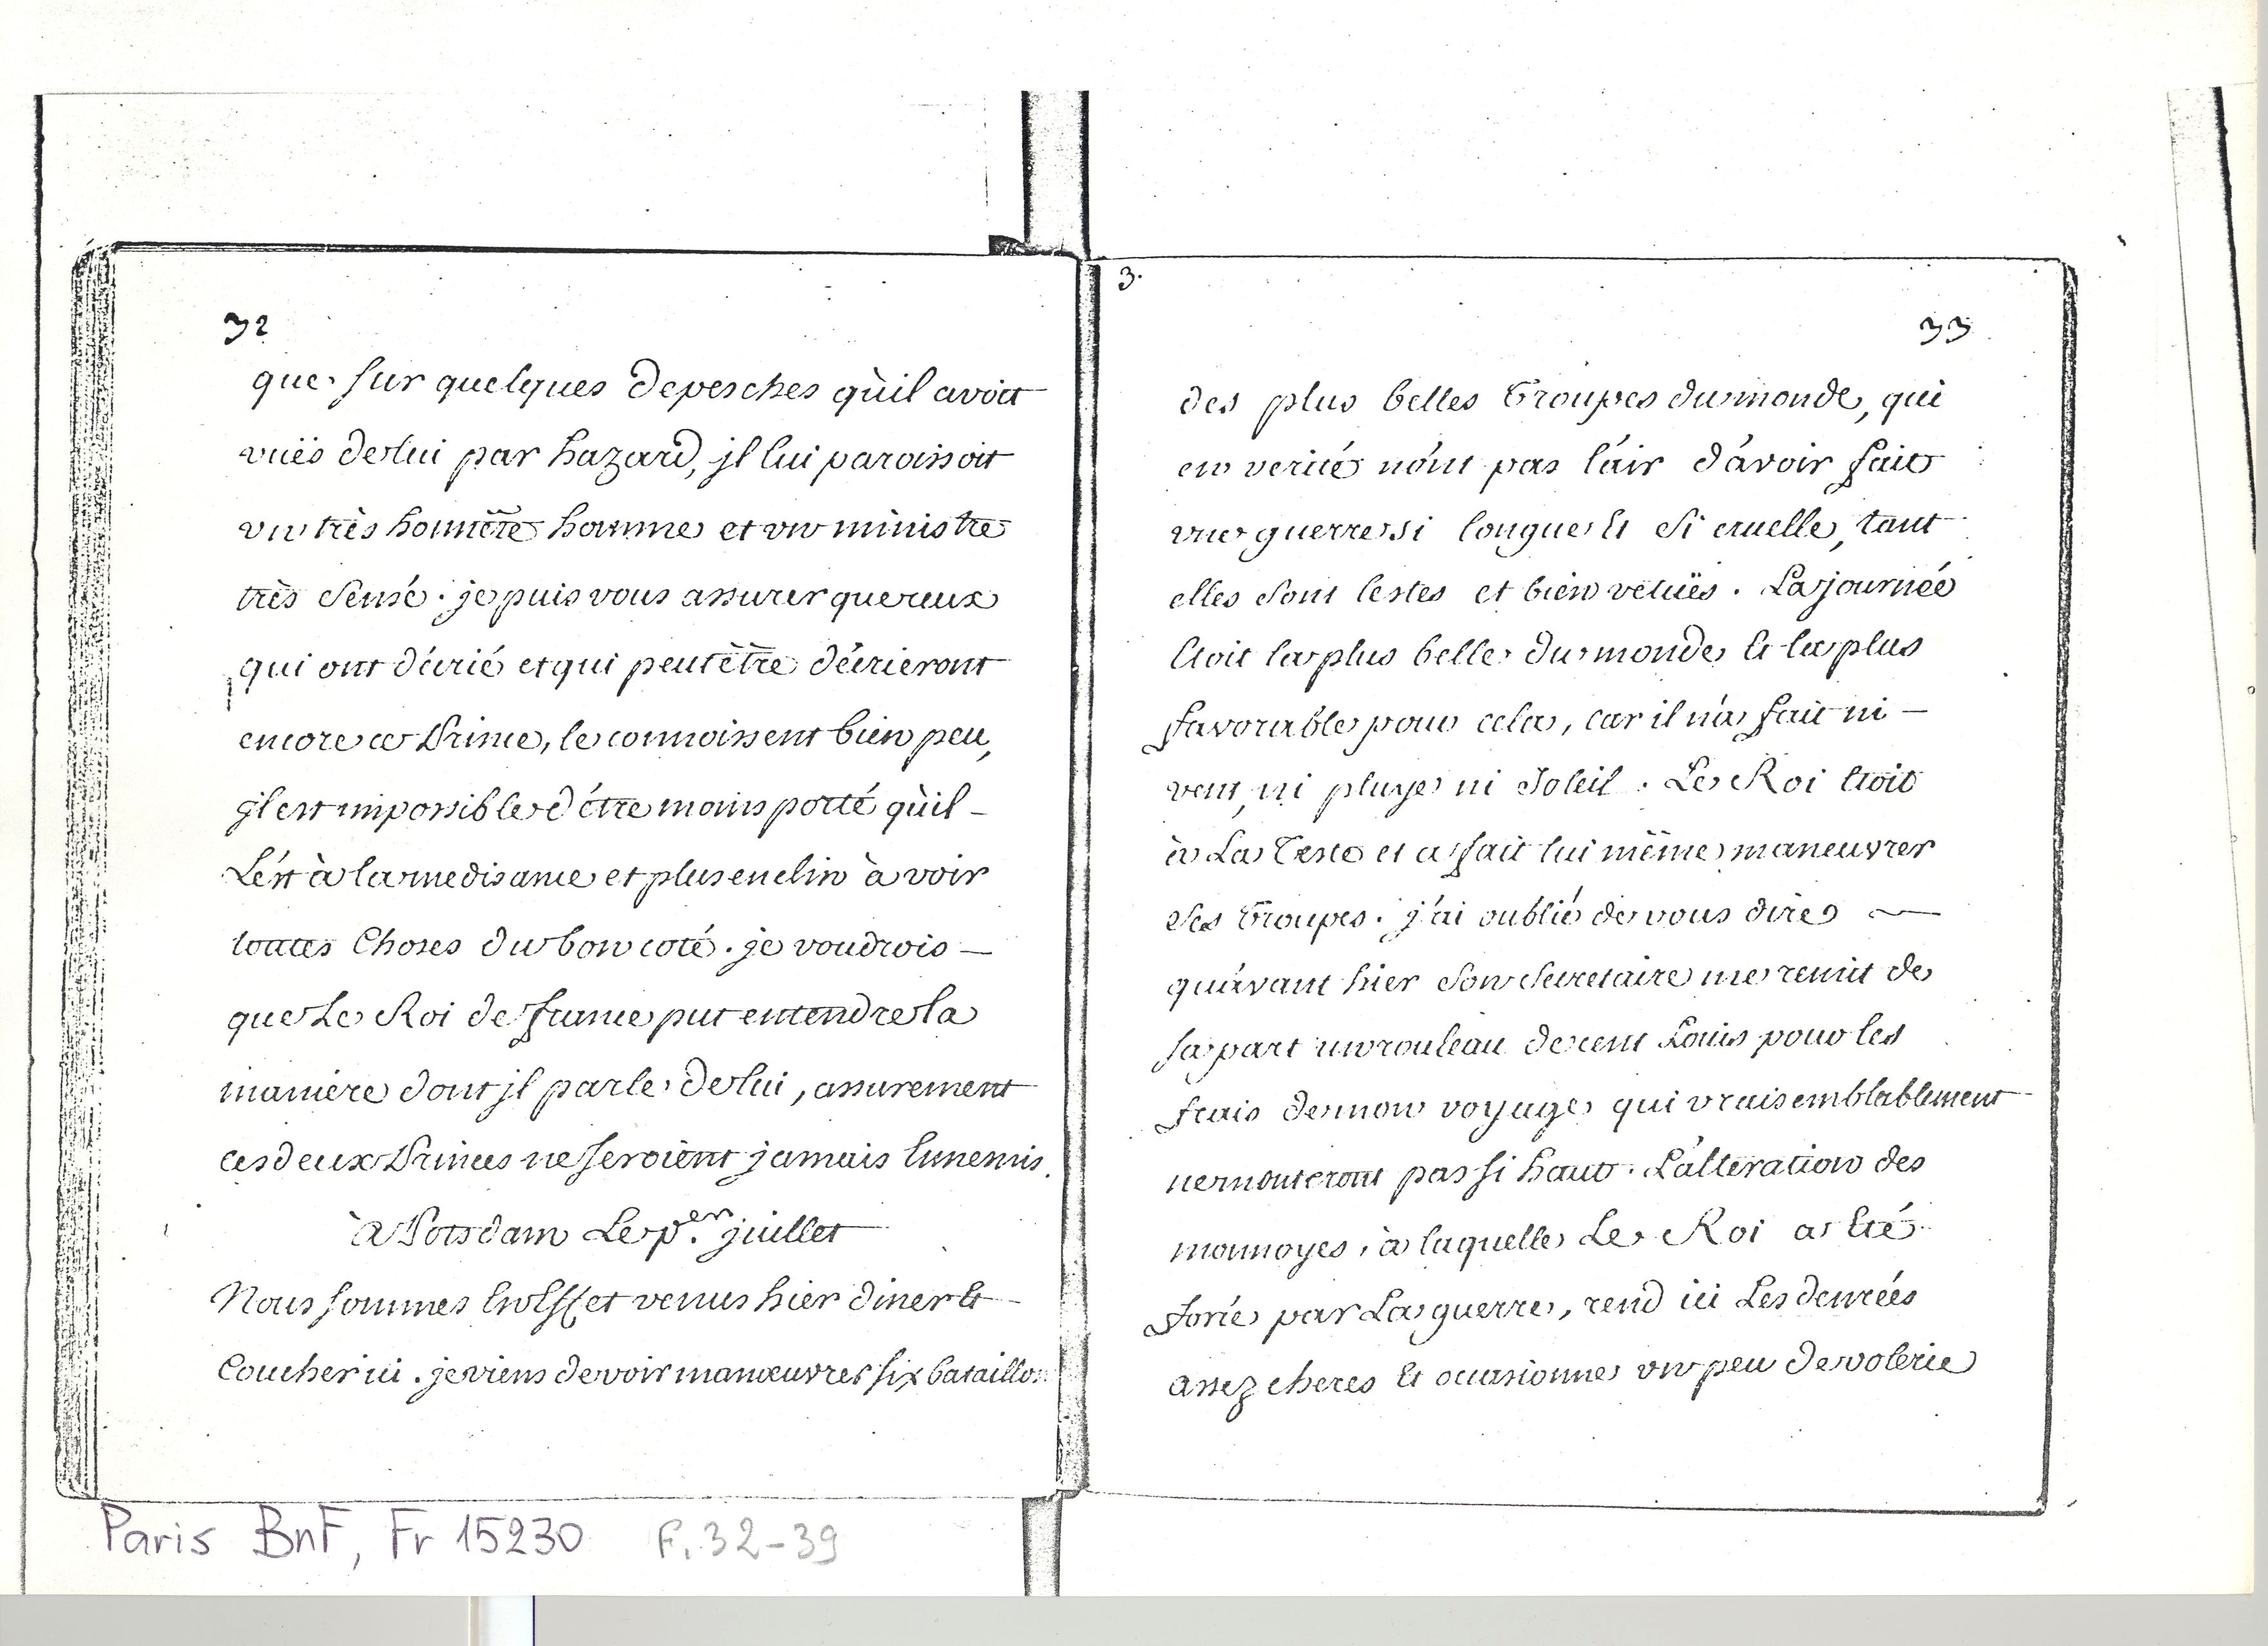 32
que sur quelques depesches qùil avoit
vuës de lui par hazard, jl lui paroissoit
vn très honnête homme et vn ministre
très sensé. je puis vous assurer que ceux
qui ont décrié et qui peut être décrieront
encore ce Prince, le connoissent bien peu,
jl est impossible d'être moins porté qùil
L'ést à la medisance et plus enclin à voir
toutes Choses du bon coté. je voudrois —
que Le Roi de france put entendre la
maniere dont jl parle de lui, assurement
ces deux Princes ne seroient jamais Ennemis.
à Potsdam Le p.er juillet
Nous sommes et venus hier diner Et
Coucher ici. je viens de voir manœuvrer six bataillons
3.
33
des plus belles troupes du monde, qui
en verité n'ont pas l'air d'avoir fait
vne guerre si longue Et si cruelle, tant
elles sont lestes et bien vetuës. La journée
Etoit la plus belle du monde Et la plus
favorable pour cela, car il n'a fait ni —
vent, ni pluye ni soleil. Le Roi Etoit
à La Teste et a fait lui même maneuvrer
ses troupes. j'ai oublié de vous dire —
qu'avant hier son secretaire me remit de
sa part un rouleau de cent Louis pour les
frais de mon voyage qui vraisemblablement
ne monteront pas si haut. L'alteration des
monnoyes, à laquelle Le Roi a Eté
forcé par La guerre, rend ici Les denrées
assez cheres Et occasionne vn peu de volerie
Paris BnF, Fr 15230 F. 32-39